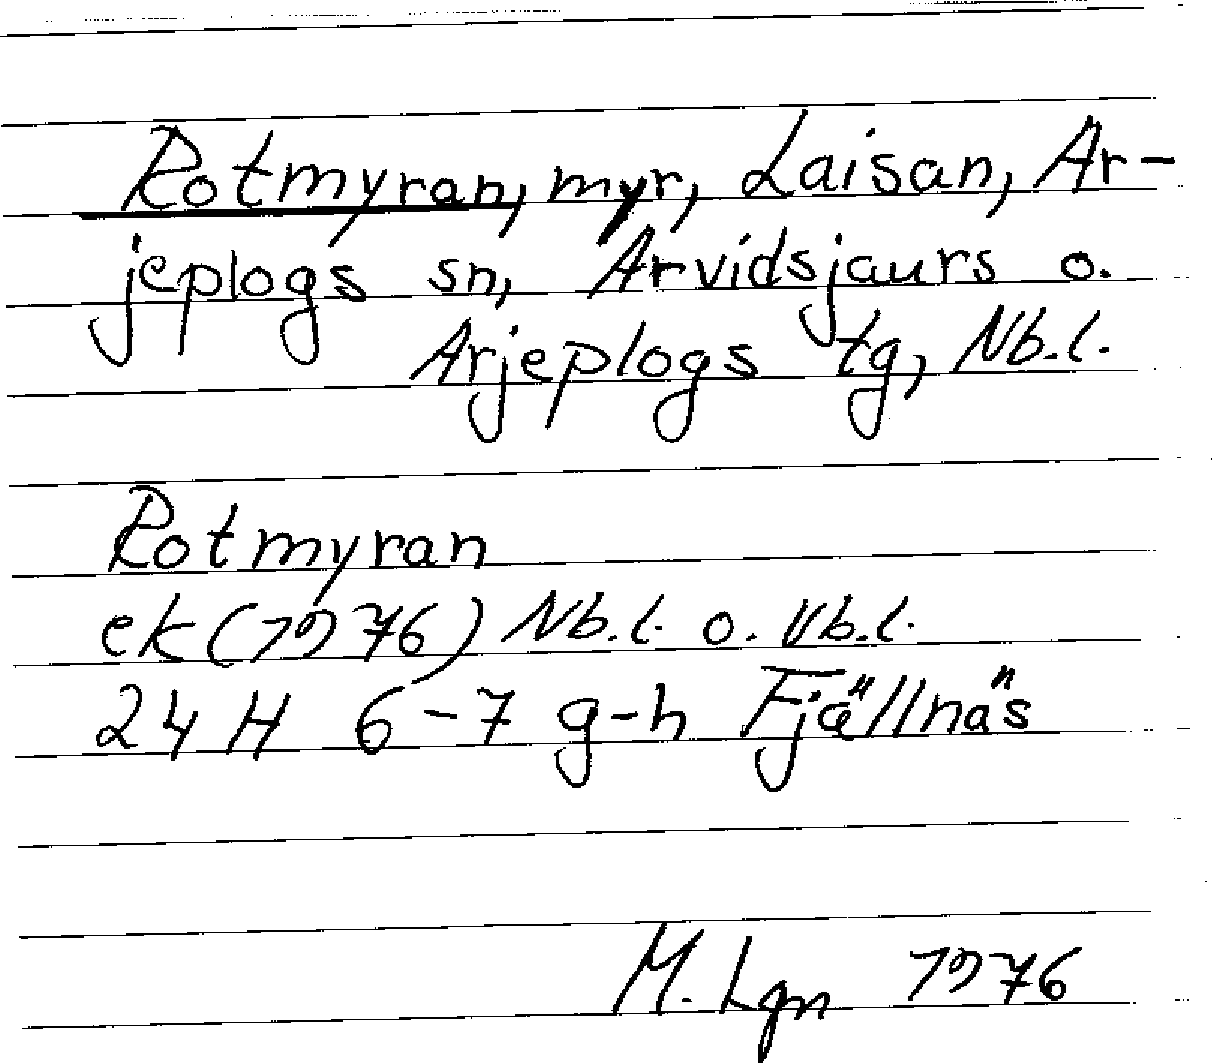 Rotmyran, myr, Laisan, Ar-
jeplogs sn, Arvidsjaurs o.
Arjeplogs tg, Nb.l.
Rotmyran
ek (1976) Nb.l. o. Vb.l.
24 H 6-7 g-h Fjällnäs
M. Lgn 1976